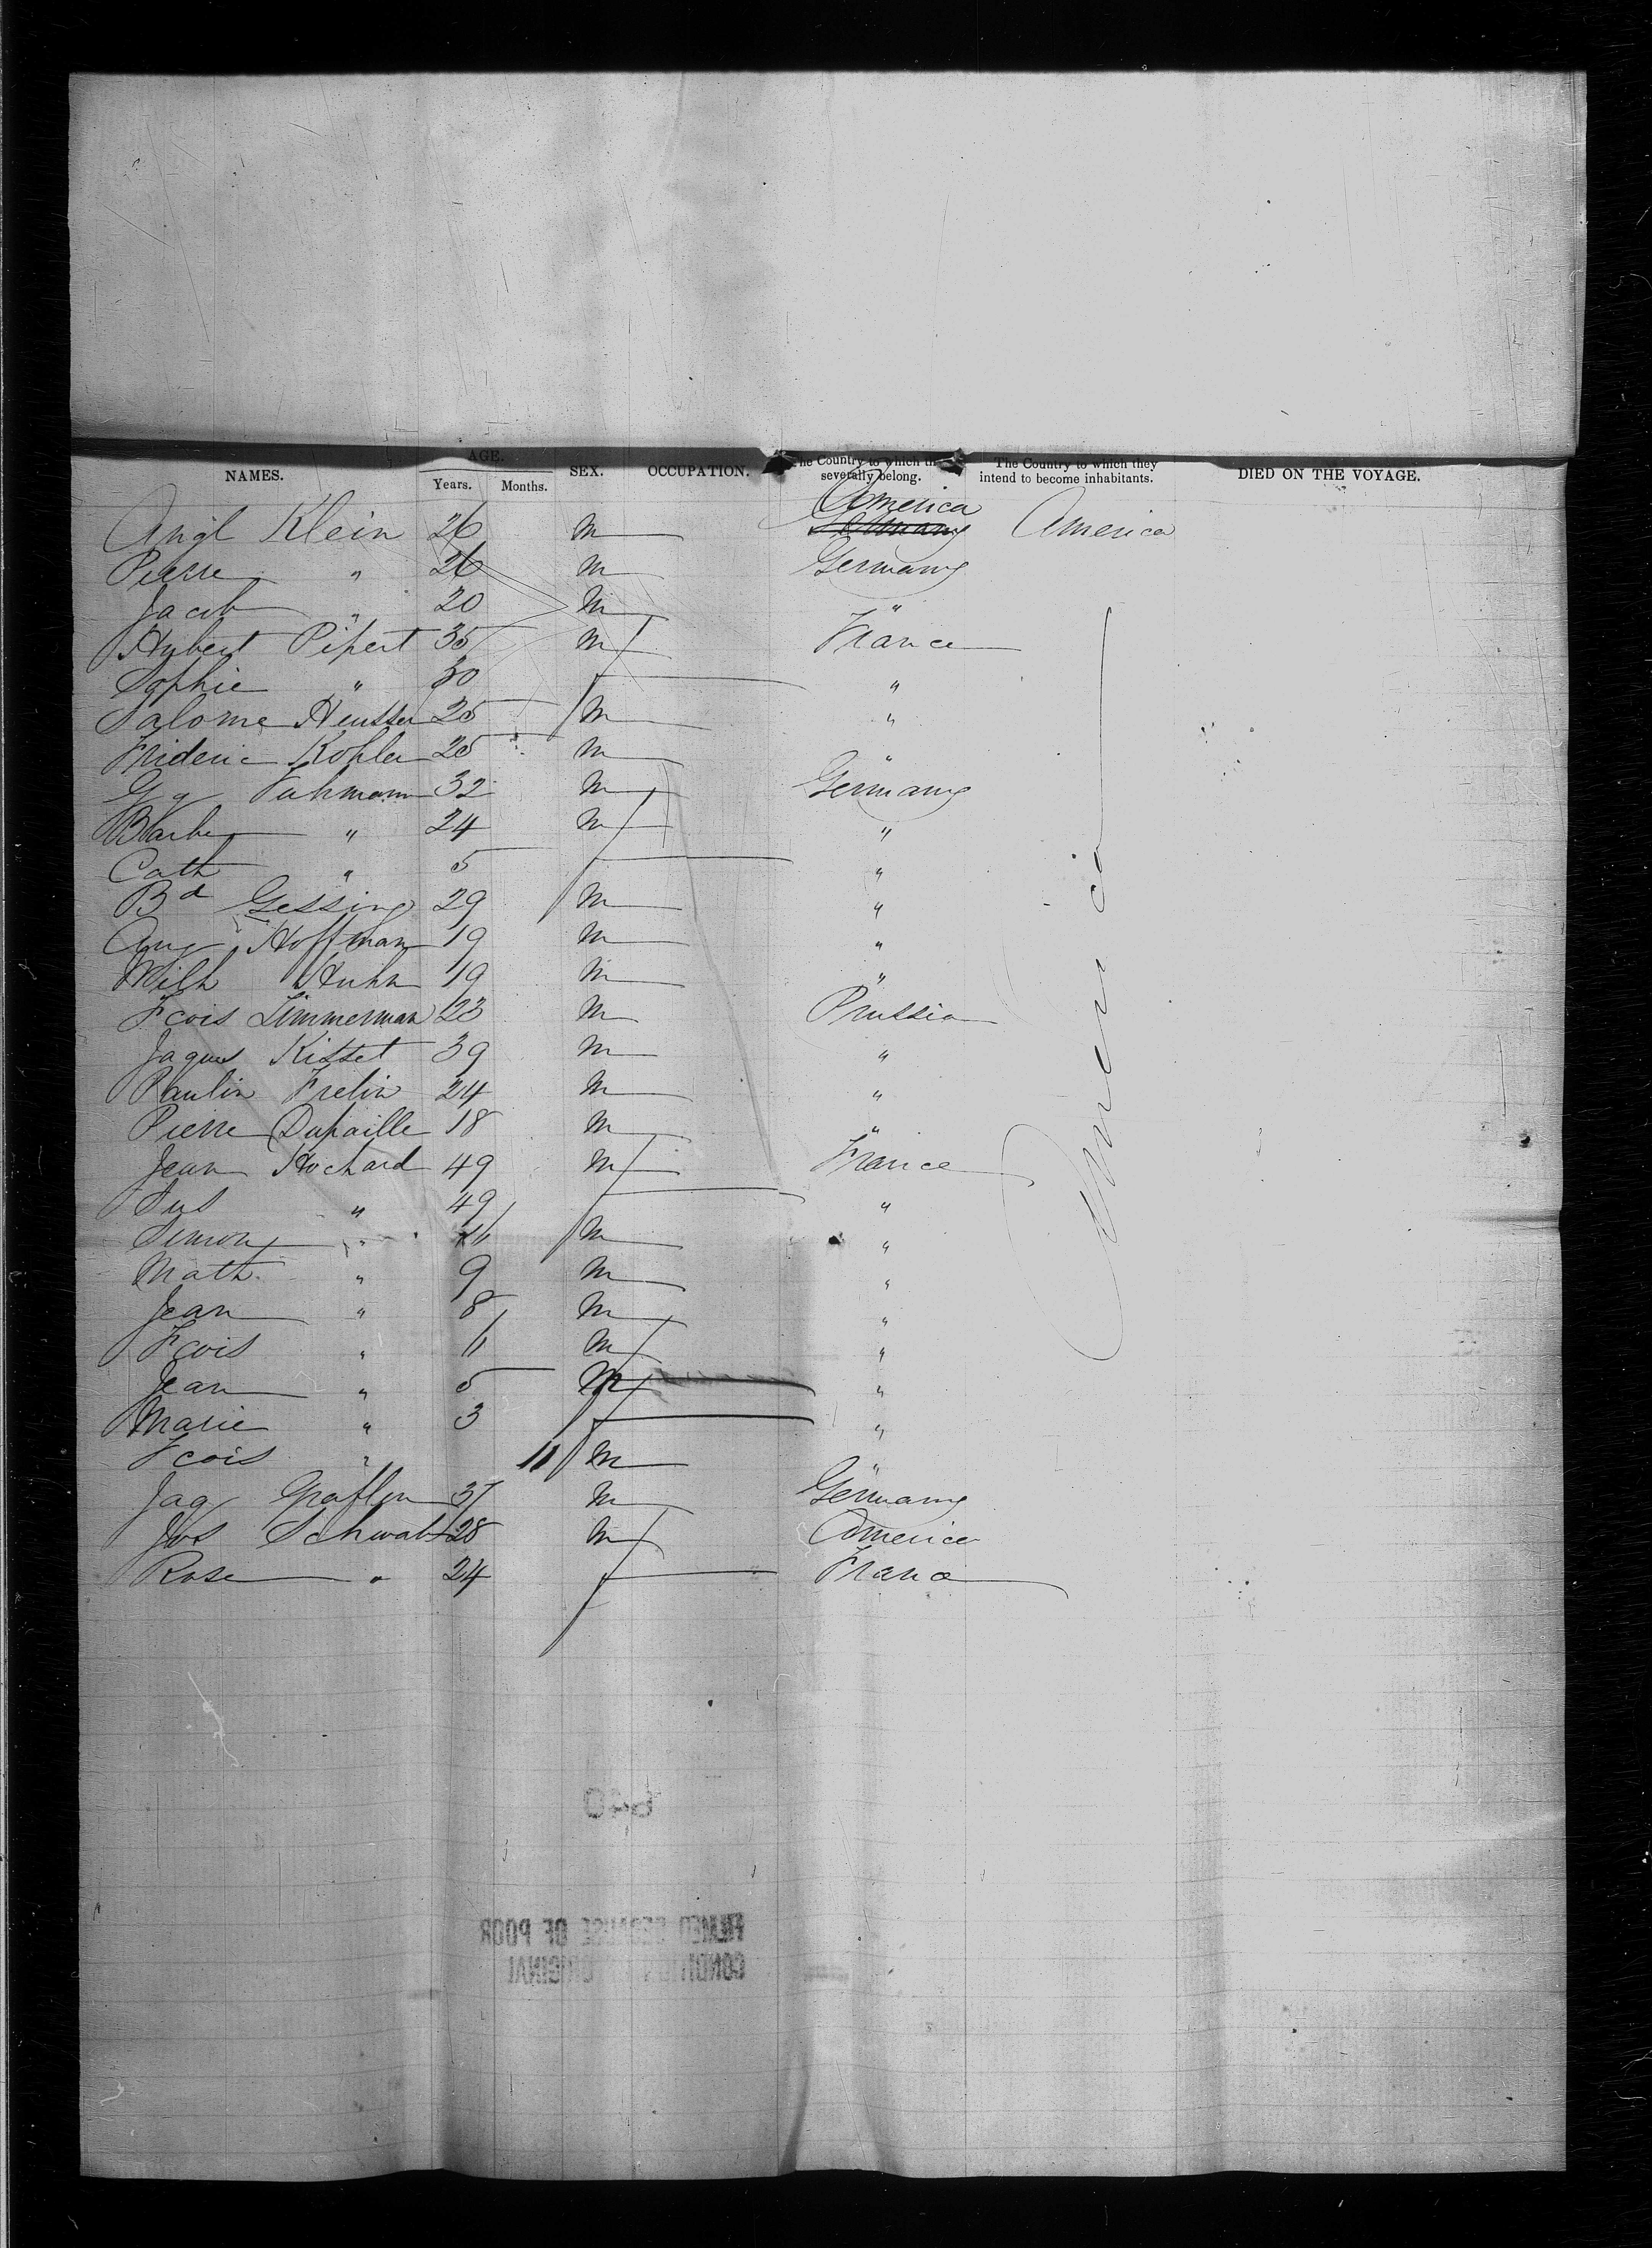 NAMES. AGE. Years. Months. SEX. OCCUPATION. The Country to which they severally belong. The Country to which they intend to become inhabitants. DIED ON THE VOYAGE.
America
Angl Klein 26 m Germany America
Pierre " 26 m Germany
Jacob " 20 m "
Hubert Pipert 35 m France
Sophie " 30 f "
Salome Heusser 25 m "
Frideric Kohler 25 m "
Gg 32 m Germany
Barbe " 24 m "
Cath " 5 f "
Bd Gessing 29 m "
Aug Hoffman 19 m "
Wilh Huhn 19 m "
Fcois Zimmerman 23 m Prussia
Jaques Kisset 39 m "
Paulin Frelin 24 m "
Pierre Dupaille 18 m "
Jean Hochard 49 m France
Sus " 49 f "
Simon " 11 m "
Math. " 9 m "
Jean " 8 m "
Fcois " 6 m "
Jean " 5 m "
Marie " 3 f "
Fcois " 11 m "
Jaq 37 m Germany
Jos Schwab 28 m America
Rose " 24 f France
America
640
FILMED BECAUSE OF POOR
CONDITION OF ORIGINAL